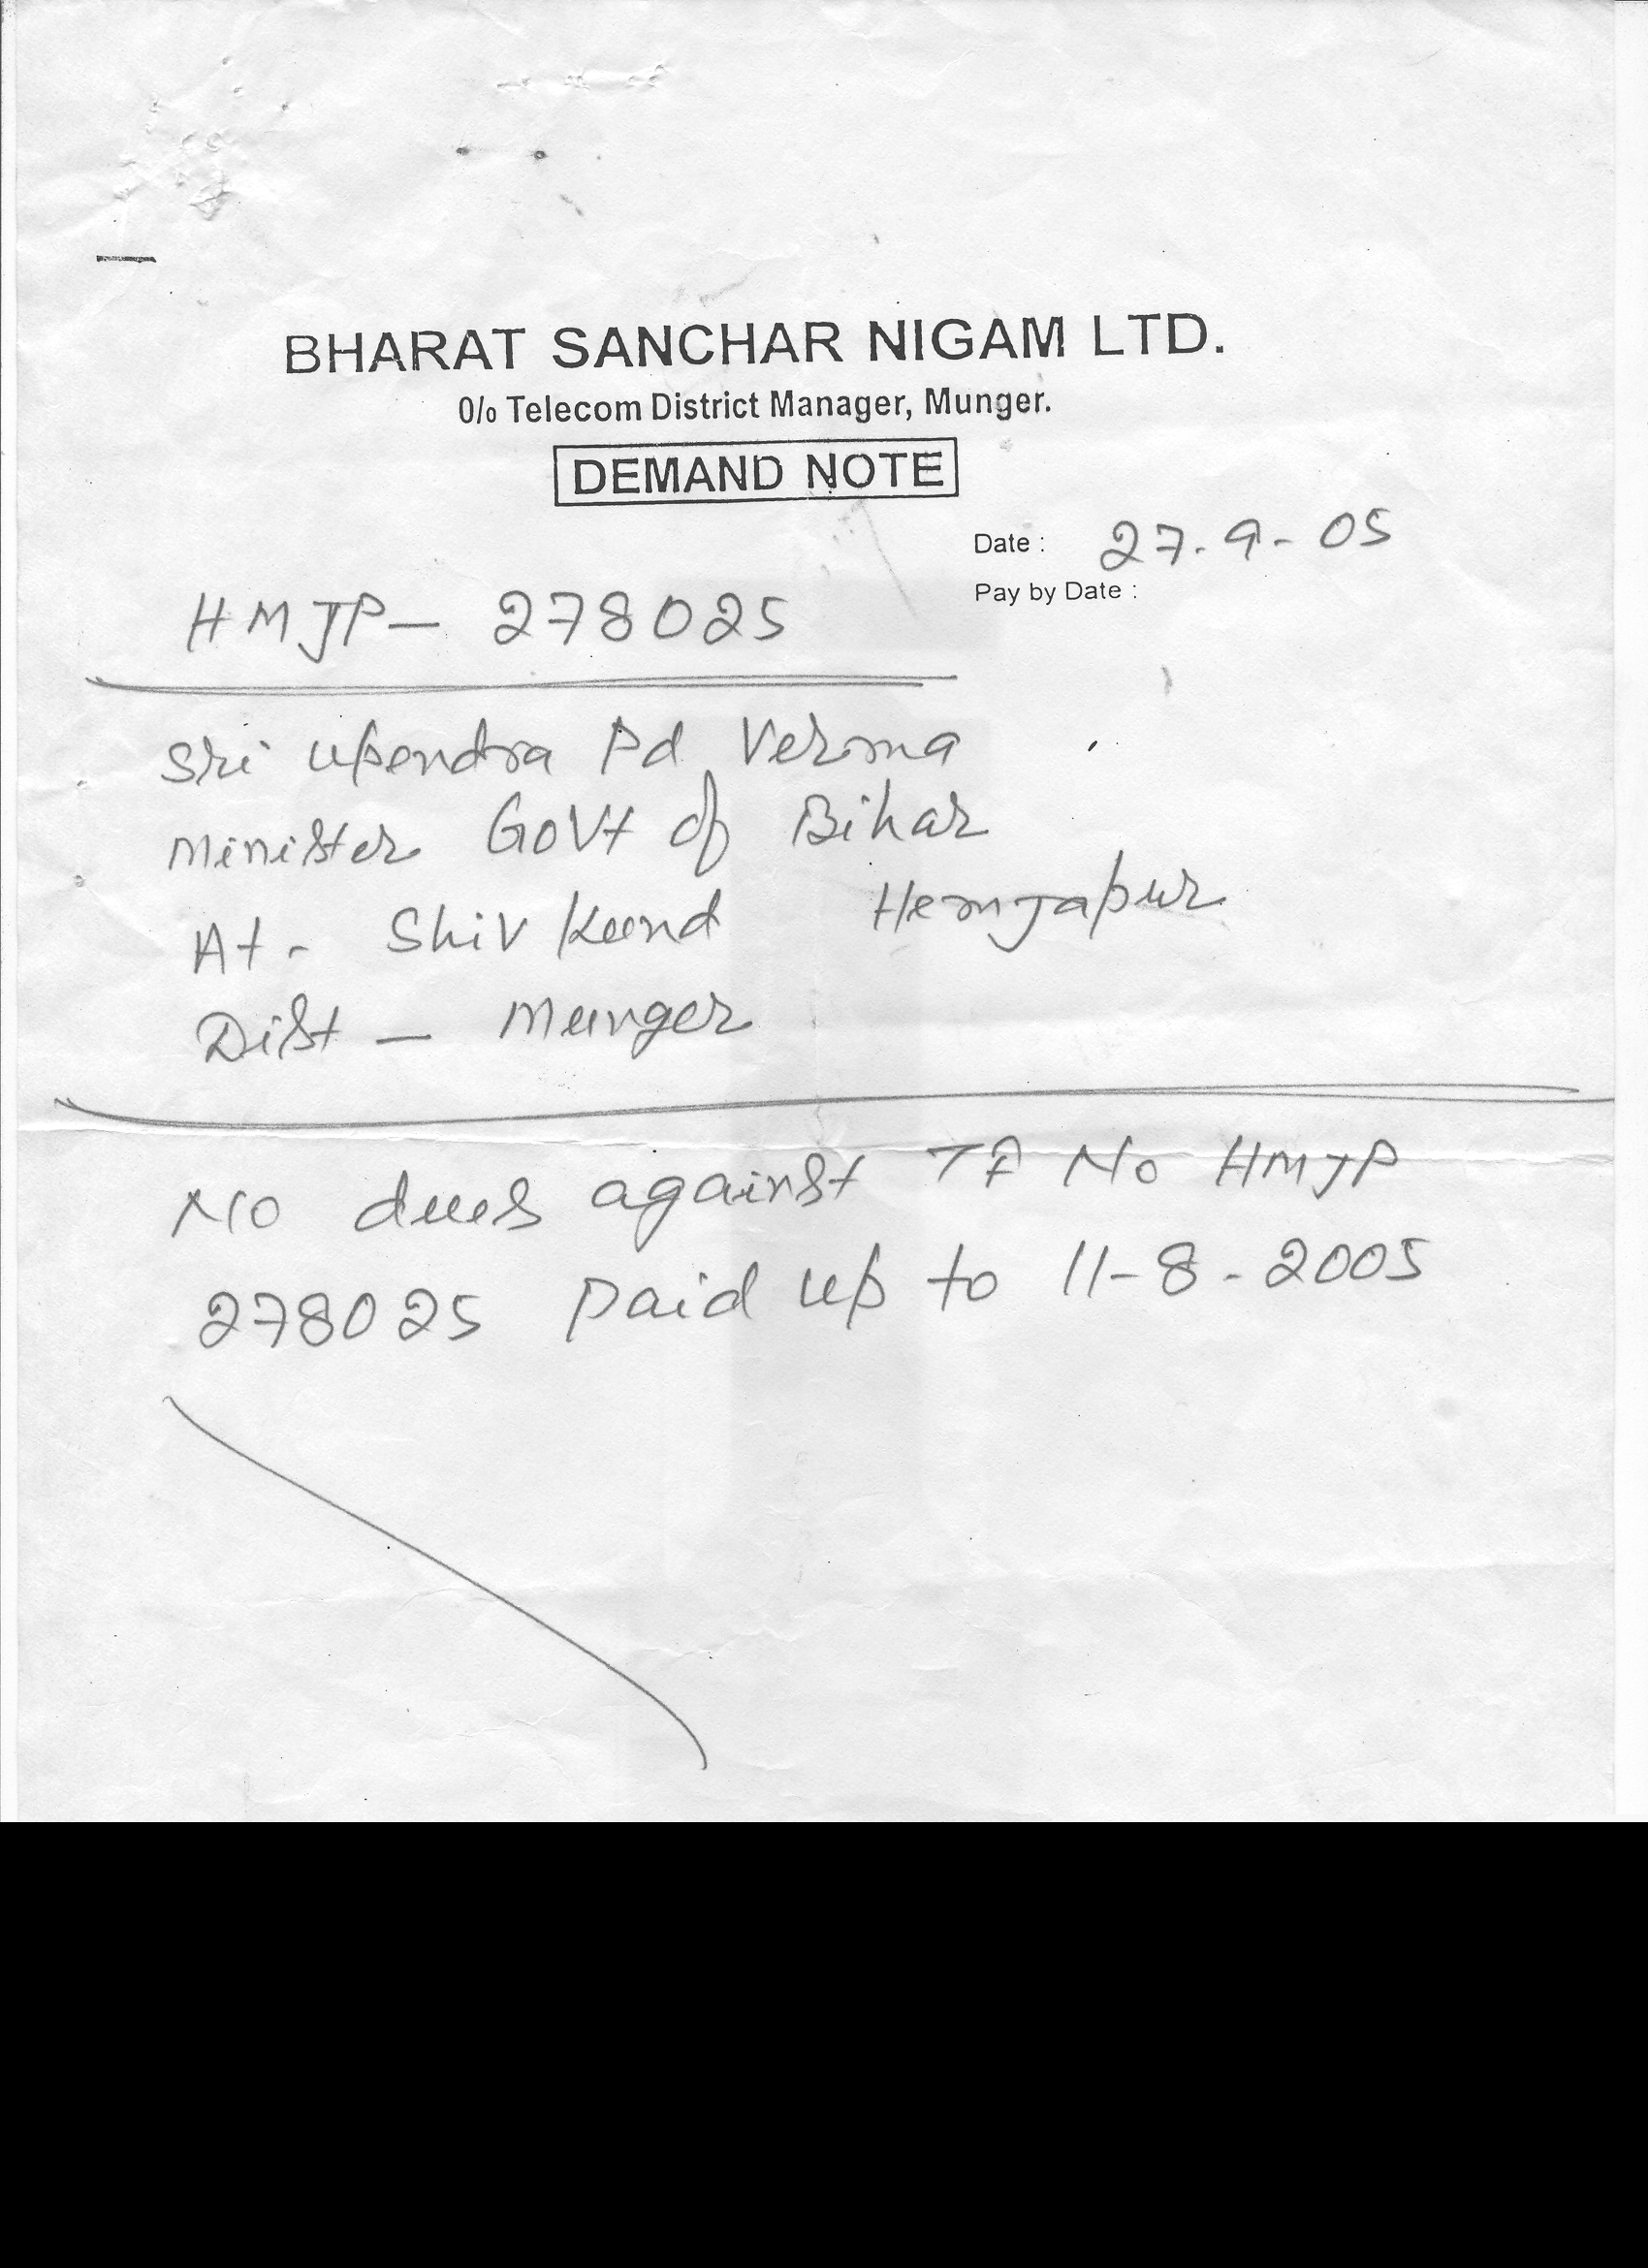 BHARAT SANCHAR NIGAM LTD.
O/o Telecom District Manager, Munger.
DEMAND NOTE
Date : 27-9-05
Pay by Date :
HMJP- 278025
Sri Upendra Pd Verma
Minister Govt of Bihar
At- Shiv Kund Hemjapur
Dist - Munger
No dues against TP No HMJP
278025 paid up to 11-8-2005